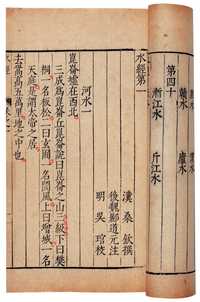 水經第一
漢 桑 欽撰
後魏酈道元注
明 吳 琯校
河水一
崑崙墟在西北
三成爲崑崙丘崑崙說曰崑崙之山三級下曰樊
桐一名板松二曰玄圃一名閬風上曰增城一名
天庭是謂太帝之居
去嵩高五萬里地之中也
水經
第四十
漸江水
斤江水